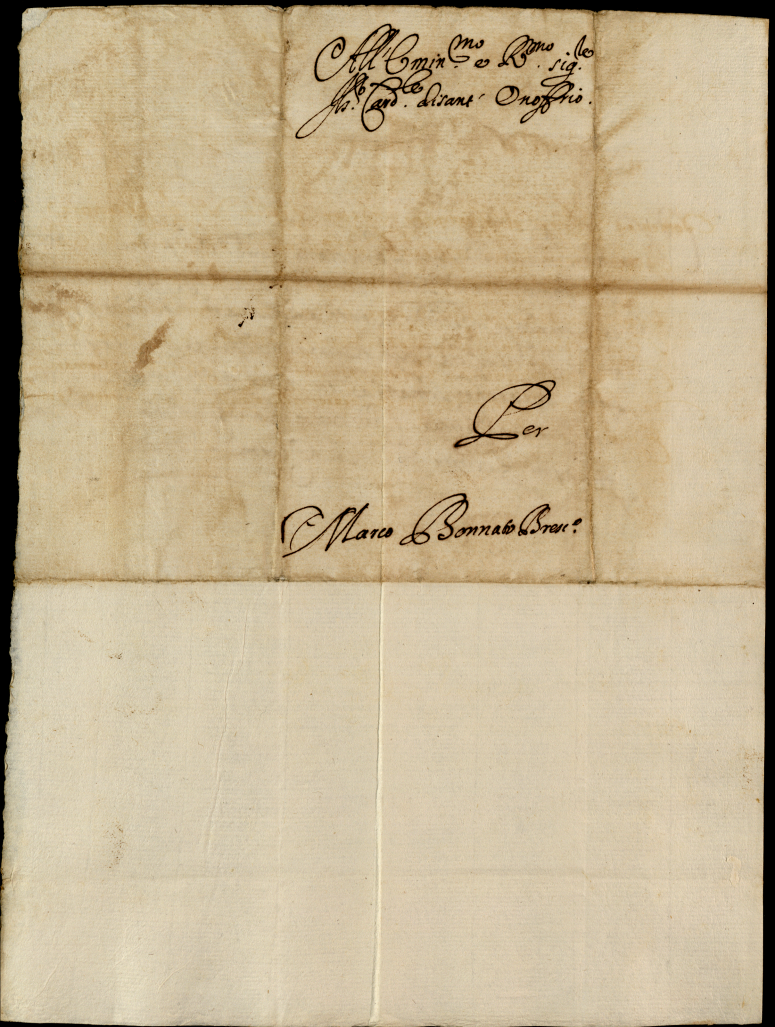 All' Emin.mo e R.mo sig.re
Il s.r Card.le di sant' Onoffrio.
Per
Marco Bonnato Bresc.o